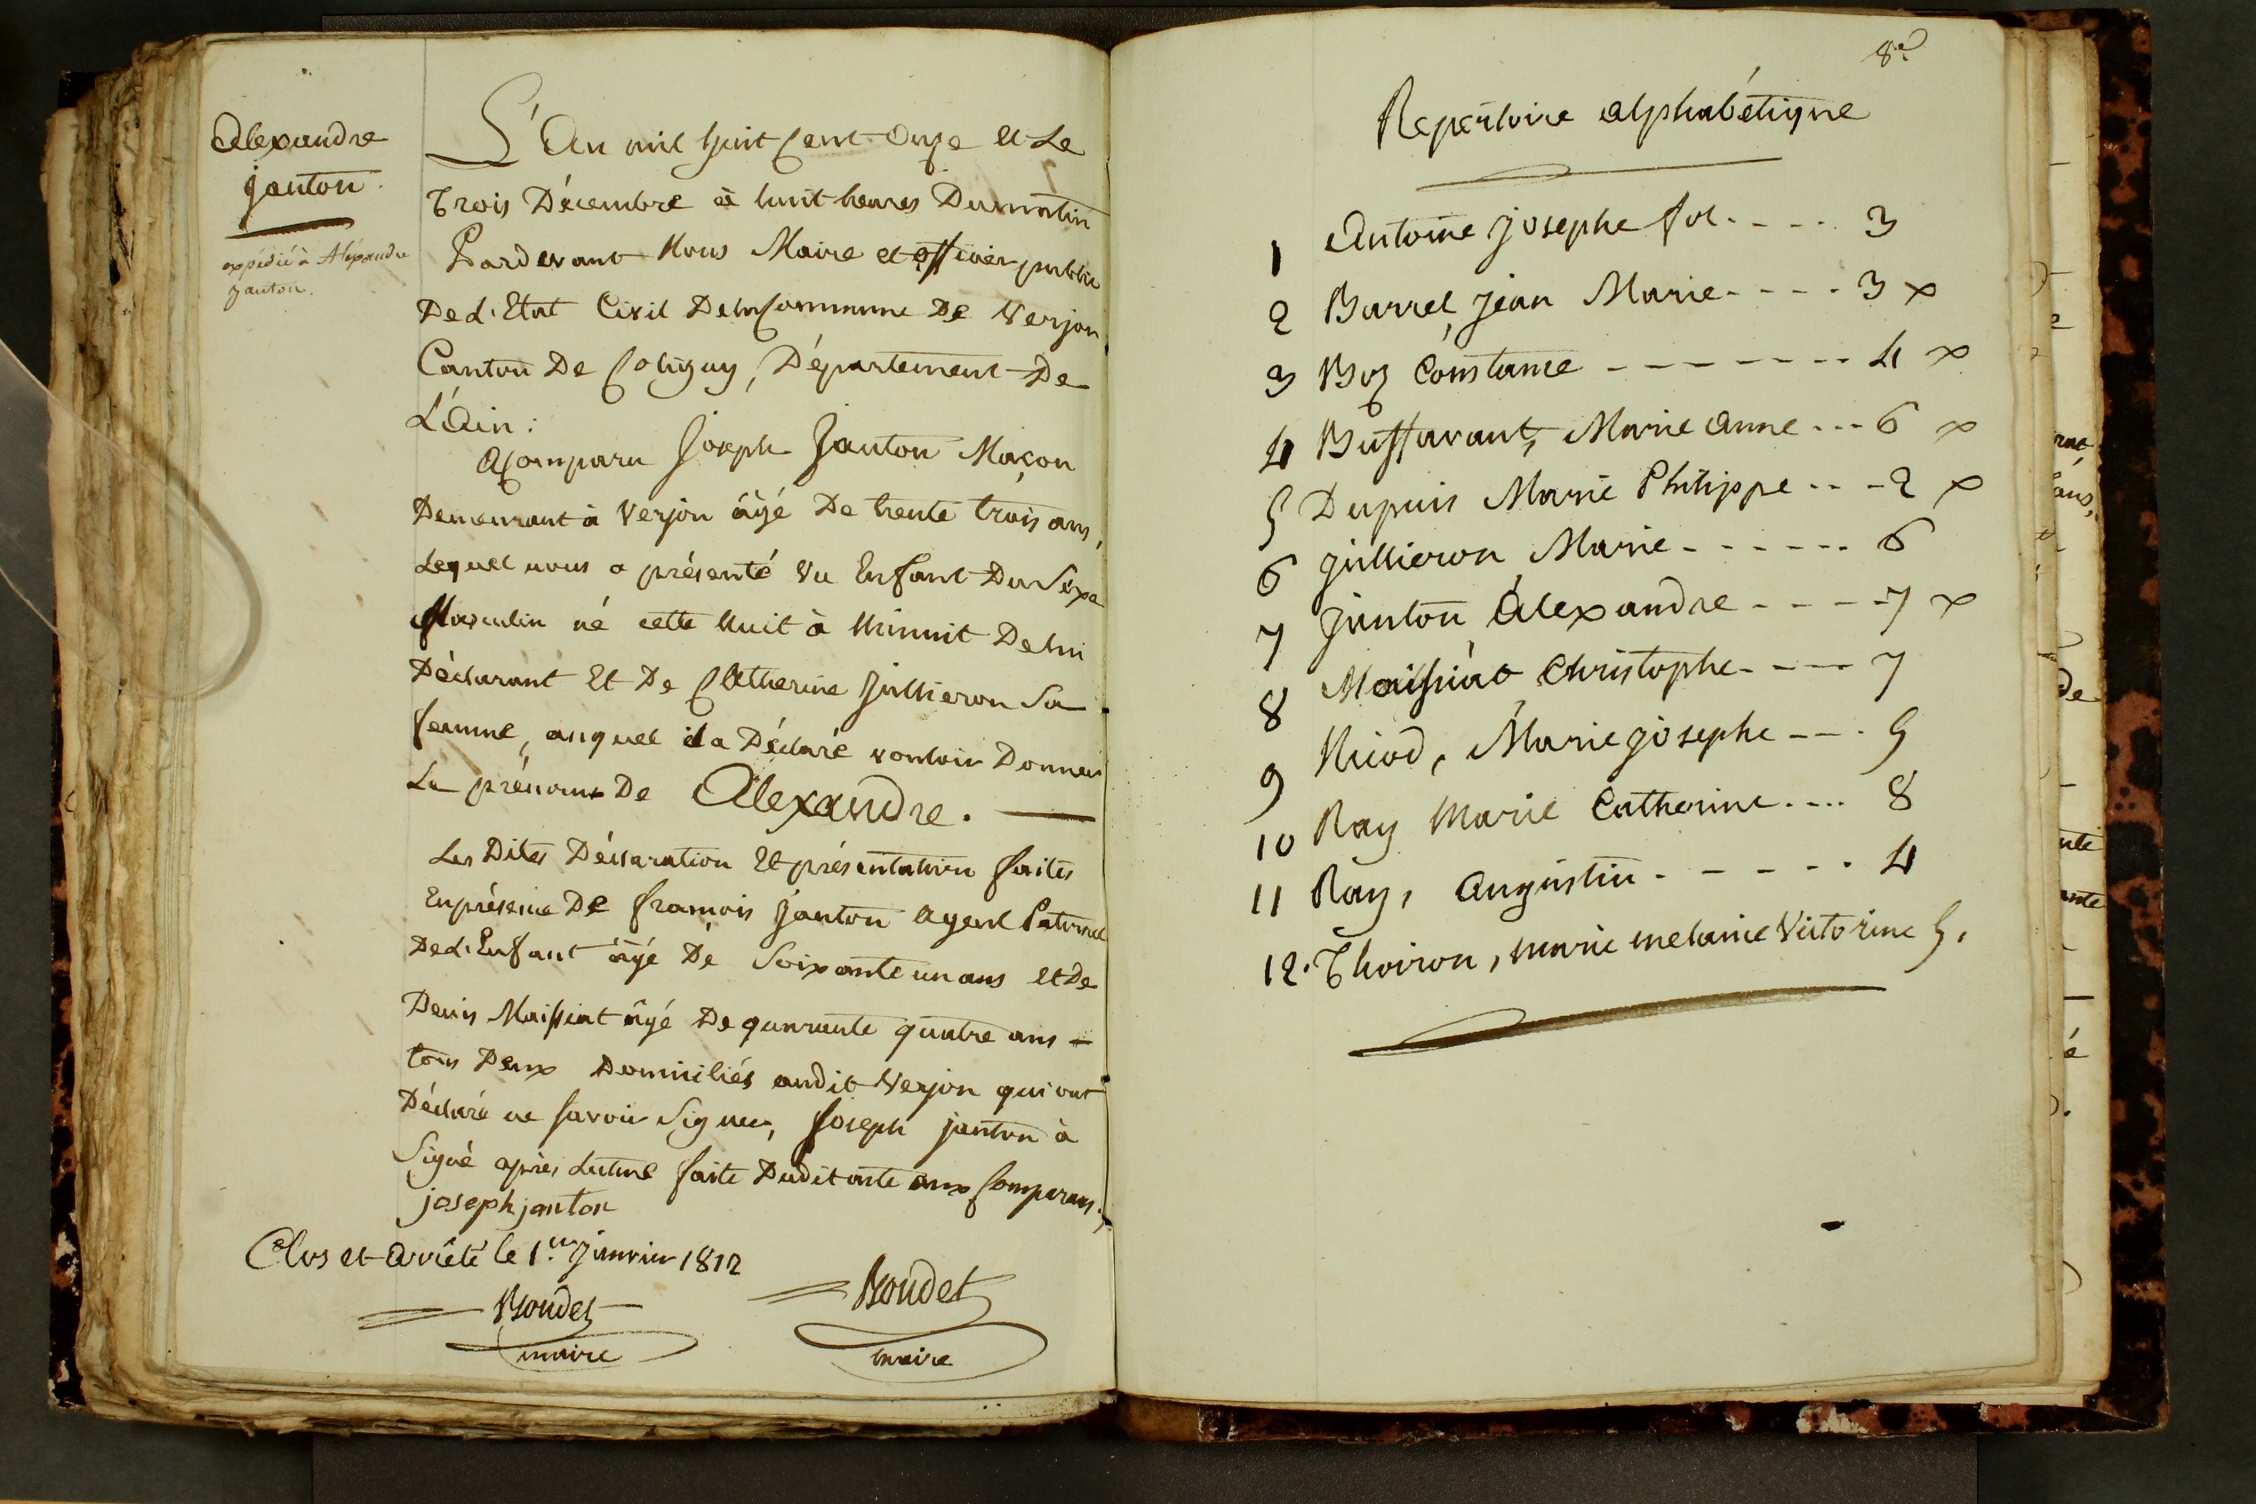 Alexandre
janton.
expédié à Aléxandre
janton.
L'An mil huit Cent Onze et Le
Trois Décembre à huit heures Dumatin
Pardevant Nous Maire et officier public
De L'Etat Civil De la Commune De Verjon
Canton De Coligny, Département De
L'Ain:
a Comparu Joseph Janton Maçon
Demeurant à Verjon âgé De trente trois ans,
Lequel nous a présenté Un Enfant Du Séxe
Masculin né cette Nuit à Minuit De lui
Déclarant Et De Catherine Jullieron Sa
femme, auquel il a Déclaré vouloir Donner
Le prénoms De Alexandre.
Les Dites Déclaration Et présentation faites
En présence De francois Janton Ayeul Paternel
De L'Enfant âgé De Soixante un ans et De
Denis Maissiat âgé De quarante quatre ans
tous Deux Domiciliés audit Verjon qui ont
Déclaré ne savoir Signer, Joseph janton à
Signé après Lecture faite Dudit acte aux Comparans.
joseph janton
Clos et Arrêté le 1.er Janvier 1812
Boudet Boudet
maire maire
8.e
Repertoire alphabétique
1 Antoine Josephe fol. - - - - 3
2 Barrel, Jean Marie - - - - 3 x
3 Boz Constance - - - - - - - 4 x
4 Buffavant, Marie Anne - - - 6 x
5 Dupuis Marie Philippe - - - 2 x
6 Jullieron Marie - - - - - - 6
7 Janton Alexandre - - - - - 7 x
8 Maissiat Christophe - - - - 7
9 Nicod, Marie josephe - - - 5
10 Ray Marie Catherine - - - - 8
11 Ray, Augustin - - - - - - 4
12. Thoiron, marie melanie Victorine 5.